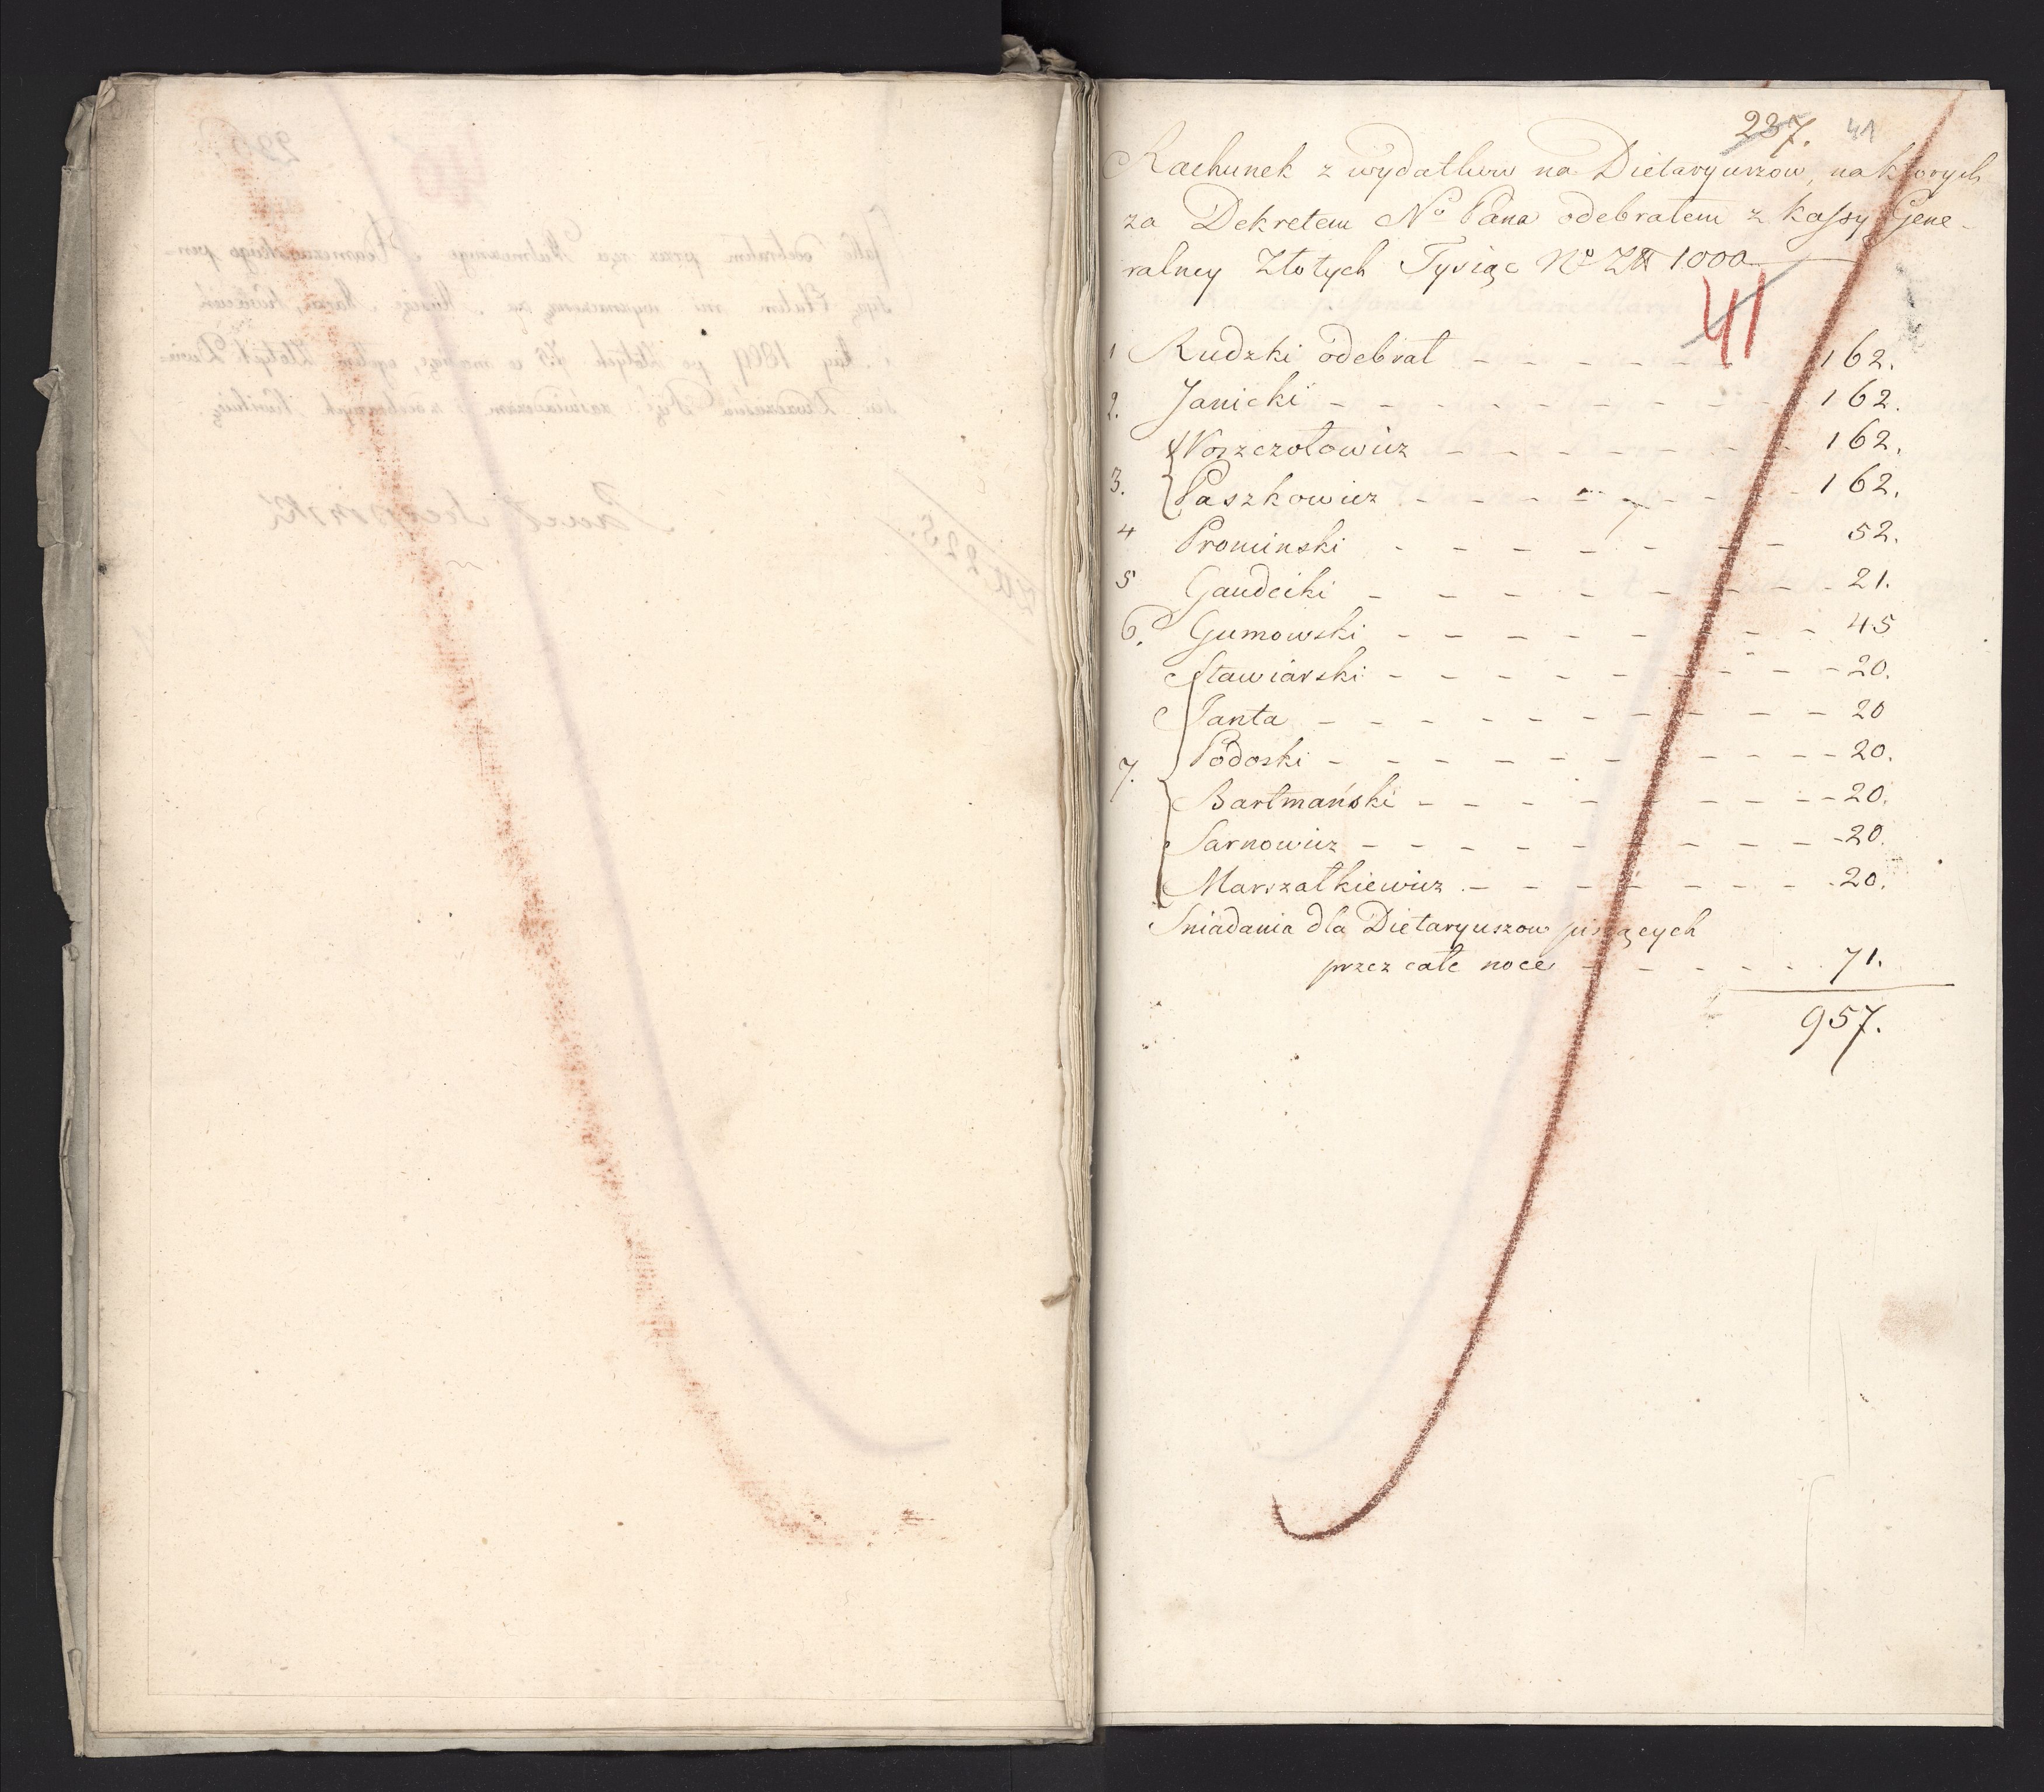 237. 41
Rachunek z wydatkow na Dietaryuszow, na ktorych
za Dekretem No Pana odebrałem z kassy Gene-
ralney Złotych Tysiąc No Złł 1000
41
1 Rudzki odebrał - - - - - 162.
2. Janicki - - - - - - - - - - - 162.
Woszczołowicz - - - - - - - - - 162.
3. Paszkowicz - - - - - - - - - 162.
4 Prominski - - - - - - - - 52.
5 Gaudecki - - - - - - - - 21.
6. Gumowski - - - - - - - - 45
Stawiarski - - - - - - - - - - 20.
Janta - - - - - - - - - - - 20
7. Podoski - - - - - - - - - - - 20.
Bartmański - - - - - - - - - 20.
Sarnowicz - - - - - - - - - - 20.
Marszałkiewicz - - - - - - - - 20.
Sniadania dla Dietaryuszow piszących
przez całe noce - - - - - 71.
957.